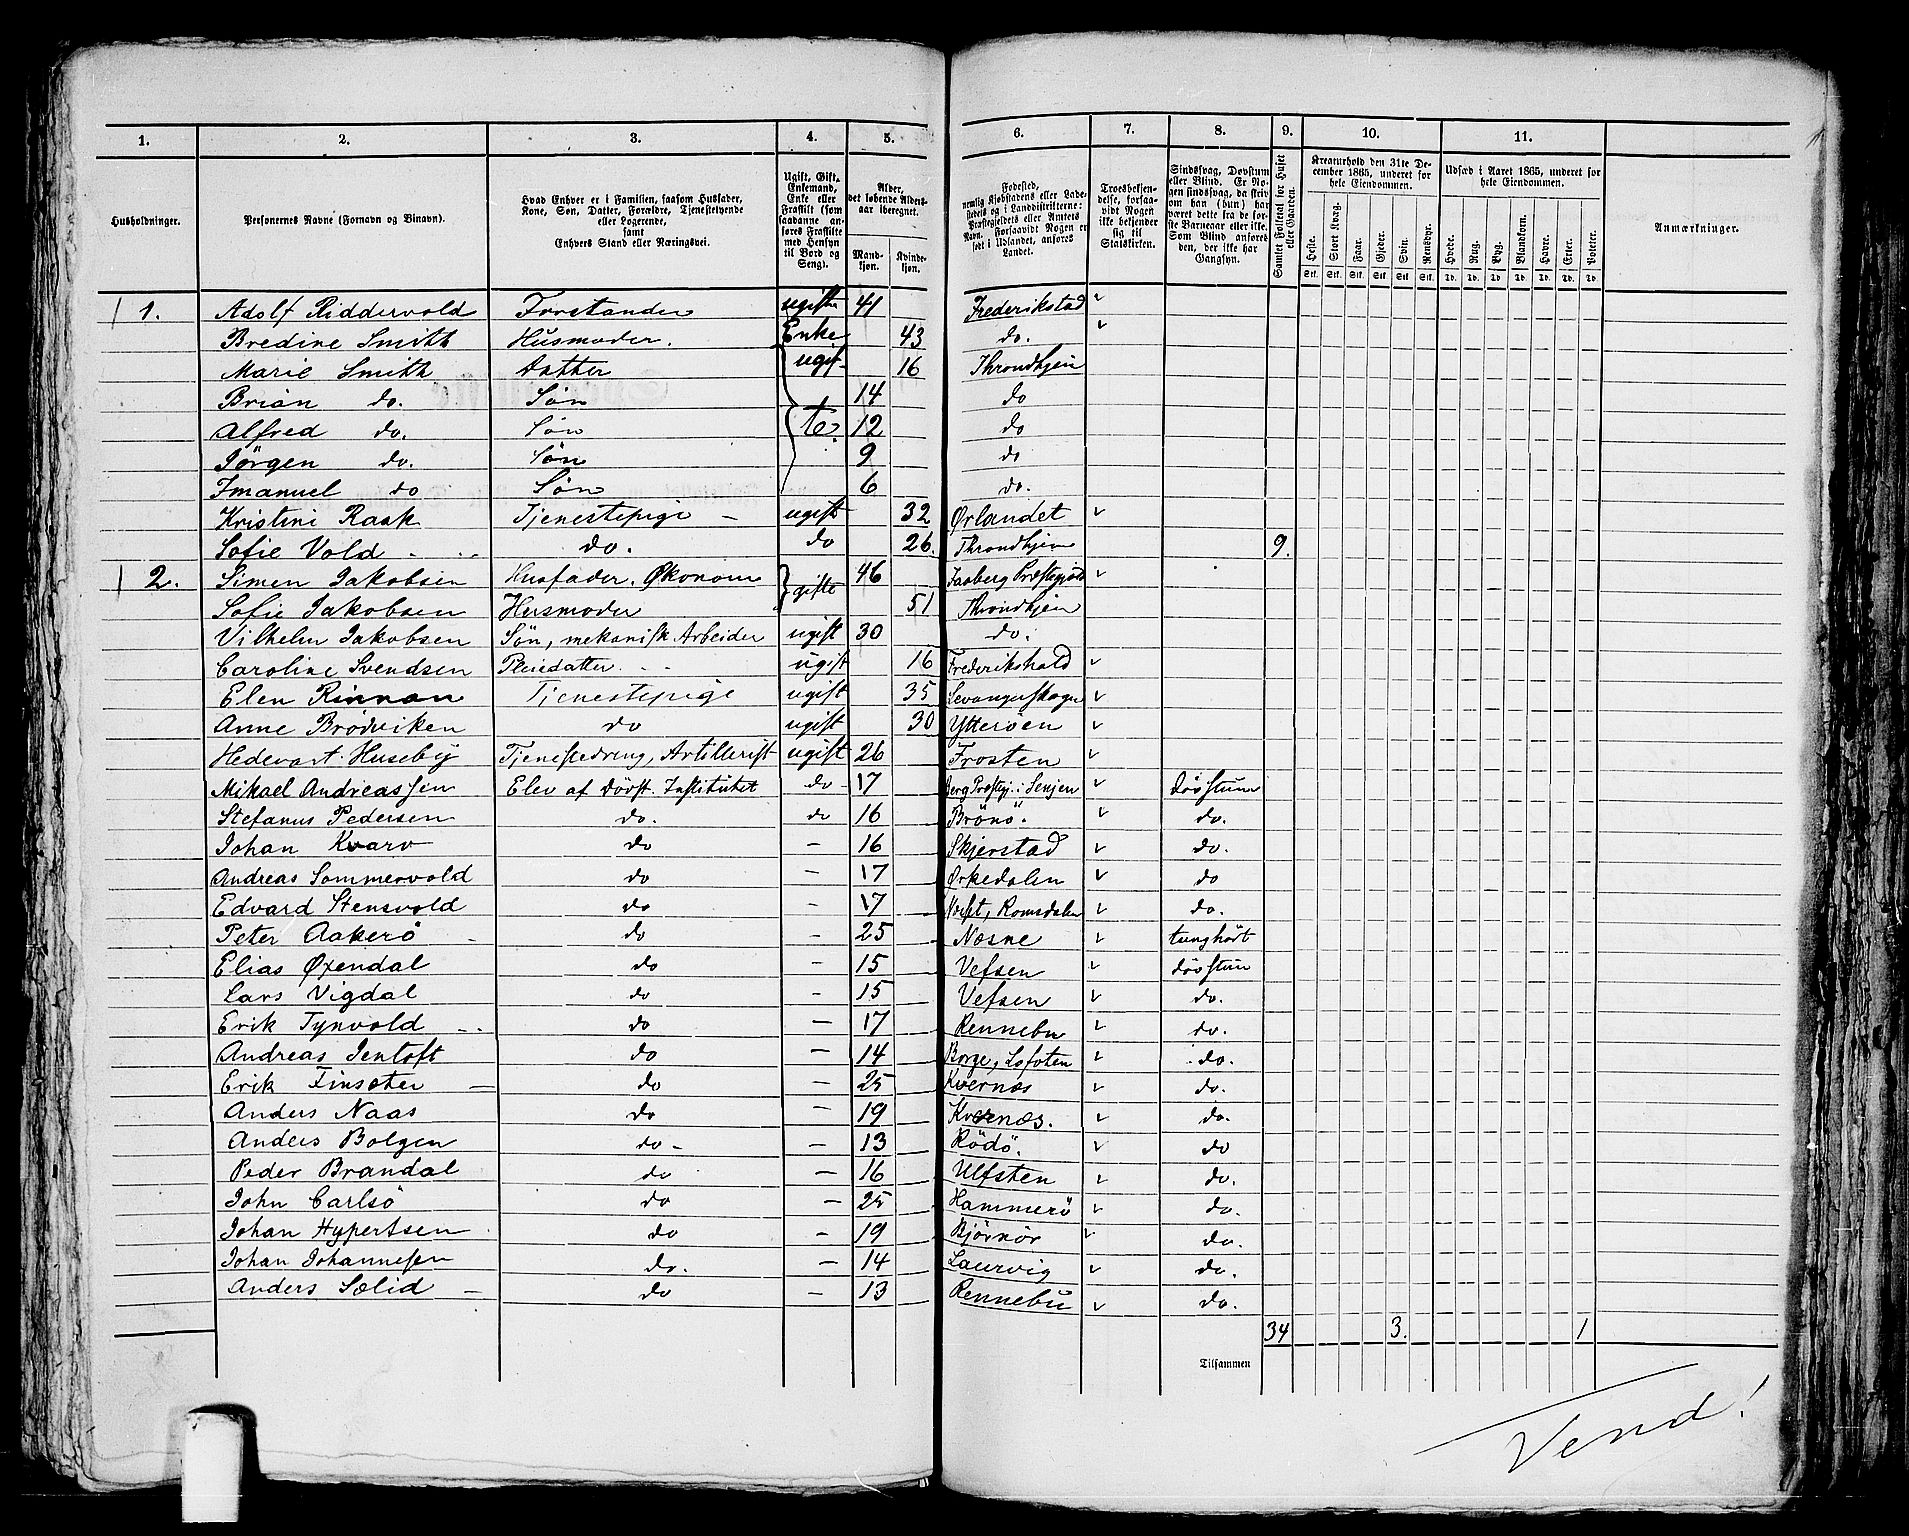 1. 2. 3. 4. 5. 6. 7. 8. 9. 10. 11.
Husholdninger.
Personernes Navne (Fornavn og Binavn).
Hvad Enhver er i Familien, saasom Husfader,
Kone, Søn, Datter, Forældre, Tjenestetyende
eller Logerende,
samt
Enhvers Stand eller Næringsvei.
Ugift, Gift,
Enkemand,
Enke eller
Fraskilt (som
saadanne an-
føres Fraskilte
med Hensyn
til Bord og
Seng).
Alder,
det løbende Alders-
aar iberegnet.
Mand-
kjøn.
Kvinde-
kjøn.
Fødested,
nemlig Kjøbstadens eller Lade-
stedets og i Landdistrikterne:
Præstegjeldets eller Amtets
Navn. Forsaavidt Nogen er
født i Udlandet, anføres
Landet.
Troesbekjen-
delse, forsaa-
vidt Nogen
ikke bekjender
sig til
Statskirken.
Sindssvag, Døvstum
eller Blind. Er No-
gen sindssvag, da skriv
om han (hun) har
været dette fra de før-
ste Barneaar eller ikke.
Som Blind anføres
den, der ikke har
Gangsyn.
Samlet Folketal for Huset
eller Gaarden.
Kreaturhold den 31te De-
cember 1865, underet for
hele Eiendommen.
Heste. Stort Kvæg. Faar. Gjeder. Svin. Rensdyr.
Stk. Stk. Stk. Stk. Stk. Stk.
Udsæd i Aaret 1865, underet for
hele Eiendommen.
Hvede. Rug. Byg. Blandkorn. Havre. Erter. Poteter.
Td. Td. Td. Td. Td. Td. Td.
Anmærkninger.
1. Adolf Riddervold Forstander ugifte 41 Frederikstad
Bredine Smith Husmoder. Enke 43 do.
Marie Smith Datter ugif- 16 Throndhjem
Brian do. Søn 14 do
Alfred do. Søn 12 do
Jörgen do. Søn 9 do
Imanuel do Søn 6 do.
Kristini Raak Tjenestepige - ugift 32 Ørlandet
Sofie Vold do. do 26. Throndhjem 9.
2. Simen Jakobsen Husfader. Økonom gifte 46 Præstegjeld
Sofie Jakobsen Husmoder 51 Throndhjem
Vilhelm Jakobsen Søn, mekanisk Arbeider ugift 30 do.
Caroline Svendsen Pleiedatter ugift 16 Frederikshald
Elen Rinnan Tjenestepige ugift 35 Levangerskogn
Anne Brödviken do ugift 30 Ytterøen
Hedevart Huseby Tjenestedreng, Artillerist ugift 26 Frosten
Mikael Andreassen Elev af Dövst. Institutet do 17 Berg Præstgj. i Senjen dövstum
Stefanus Pedersen do. do 16 Brönö. do.
Johan Kvarv do - 16 Skjerstad do.
Andreas Sommervold do - 17 Ørkedalen do
Edvard Stensvold do - 17 Romsdalen do.
Peter Aakerö do - 25 Næsne tunghört
Elias Øxendal do - 15 Vefsen dövstum
Lars Vigdal do - 15 Vefsen do.
Erik Tynvold do - 17 Rennebu do.
Andreas Jentoft do - 14 Borge, Lofoten do.
Erik Finsæter do - 25 Kvernæs do.
Anders Naas do - 19 Kvernæs. do.
Anders Bolgen do - - 13 Rödö. do
Peder Brandal do - 16 Ulfsten do.
John Carlsö do - 25 Hammerö do.
Johan Hypertsen do - 19 Björnör do.
Johan Johannesen do. - 14 Laurvig do.
Anders Sælid do - 13 Rennebu do.
34 3. 1
Tilsammen
Vend!